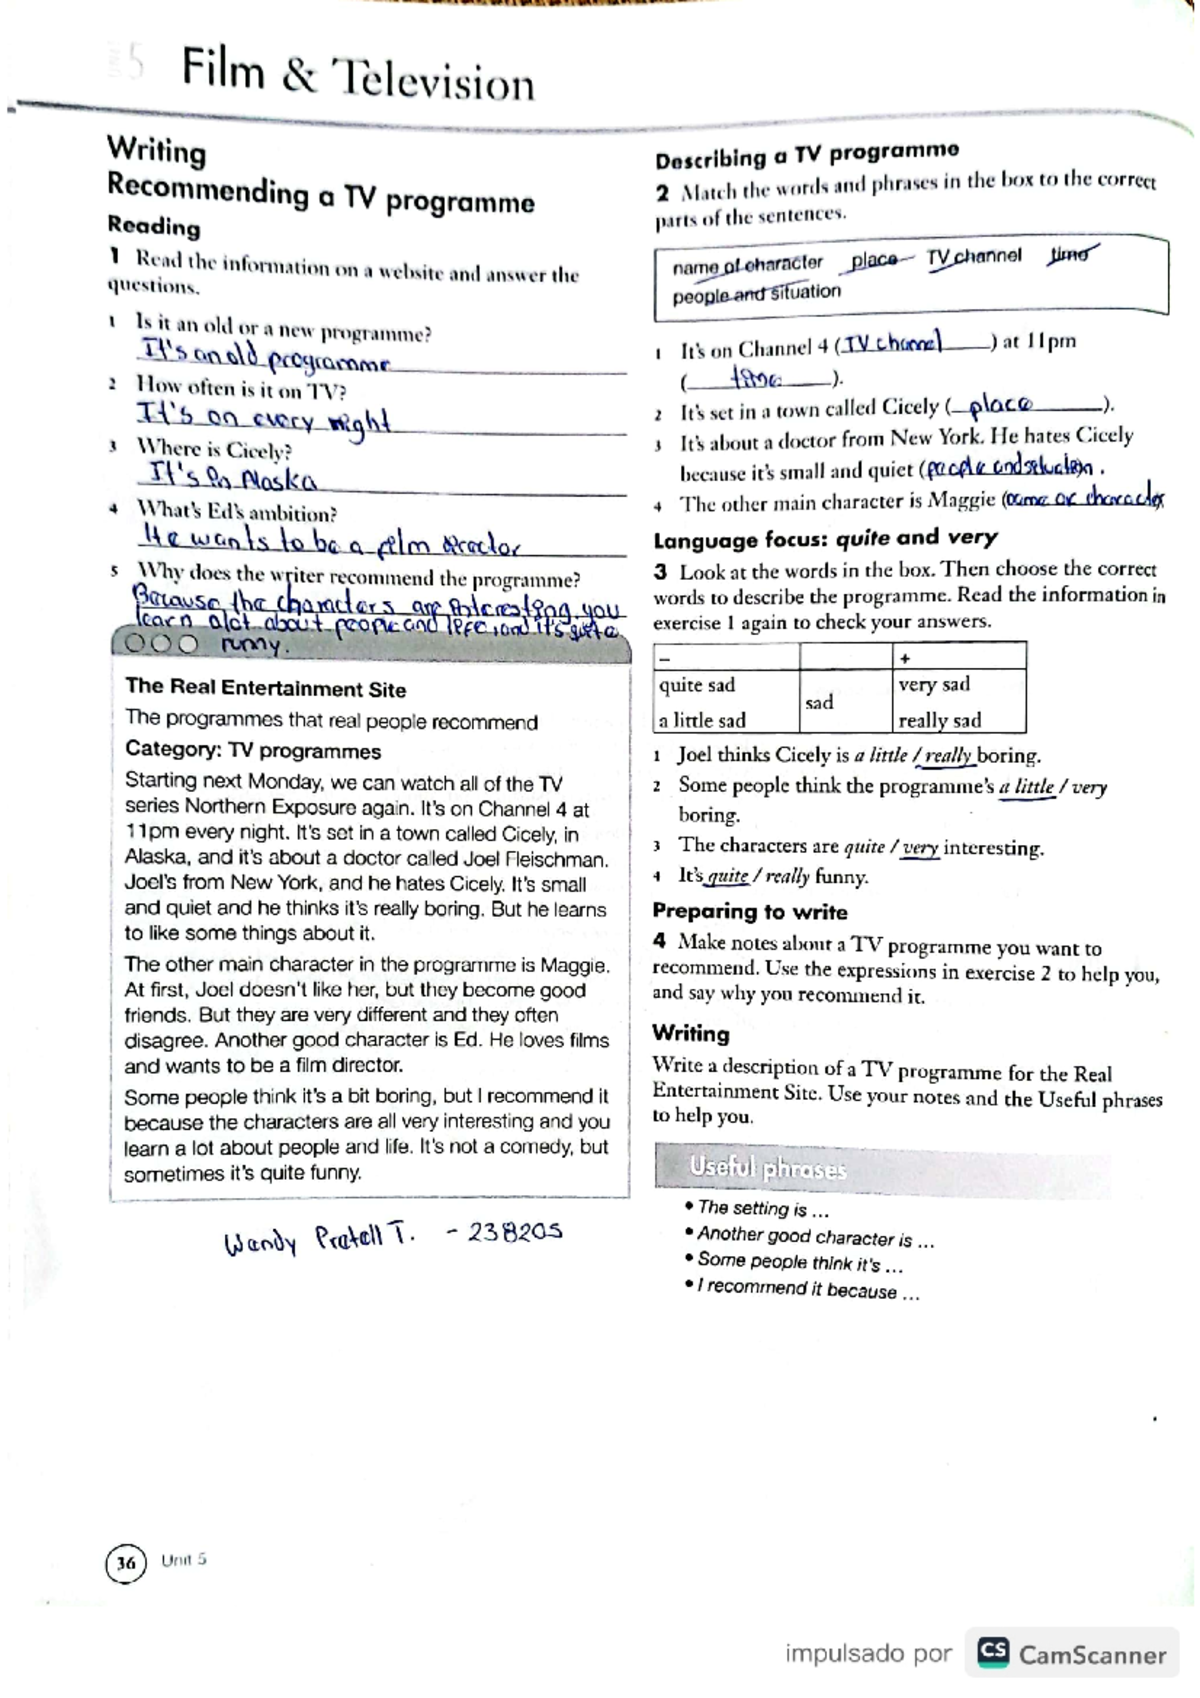 5 Film & Television
Writing
Recommending a TV programme
Reading
1 Read the information on a website and answer the
questions.
1 Is it an old or a new programme?
It's an old programme
2 How often is it on TV?
It's on every night
3 Where is Cicely?
It's in Alaska
4 What's Ed's ambition?
He wants to be a film director
5 Why does the writer recommend the programme?
Because the characters are interesting, you
learn a lot about people and life, and it's quite
funny.
The Real Entertainment Site
The programmes that real people recommend
Category: TV programmes
Starting next Monday, we can watch all of the TV
series Northern Exposure again. It's on Channel 4 at
11pm every night. It's set in a town called Cicely, in
Alaska, and it's about a doctor called Joel Fleischman.
Joel's from New York, and he hates Cicely. It's small
and quiet and he thinks it's really boring. But he learns
to like some things about it.
The other main character in the programme is Maggie.
At first, Joel doesn't like her, but they become good
friends. But they are very different and they often
disagree. Another good character is Ed. He loves films
and wants to be a film director.
Some people think it's a bit boring, but I recommend it
because the characters are all very interesting and you
learn a lot about people and life. It's not a comedy, but
sometimes it's quite funny.
Wandy Pratell T. - 238205
Describing a TV programme
2 Match the words and phrases in the box to the correct
parts of the sentences.
name of character place TV channel time
people and situation
1 It's on Channel 4 (TV channel) at 11pm
(time).
2 It's set in a town called Cicely (place).
3 It's about a doctor from New York. He hates Cicely
because it's small and quiet (people and situation).
4 The other main character is Maggie (name of character
Language focus: quite and very
3 Look at the words in the box. Then choose the correct
words to describe the programme. Read the information in
exercise 1 again to check your answers.
– +
quite sad sad very sad
a little sad really sad
1 Joel thinks Cicely is a little / really boring.
2 Some people think the programme's a little / very
boring.
3 The characters are quite / very interesting.
4 It's quite / really funny.
Preparing to write
4 Make notes about a TV programme you want to
recommend. Use the expressions in exercise 2 to help you,
and say why you recommend it.
Writing
Write a description of a TV programme for the Real
Entertainment Site. Use your notes and the Useful phrases
to help you.
Useful phrases
• The setting is ...
• Another good character is ...
• Some people think it's ...
• I recommend it because ...
36 Unit 5
impulsado por CS CamScanner